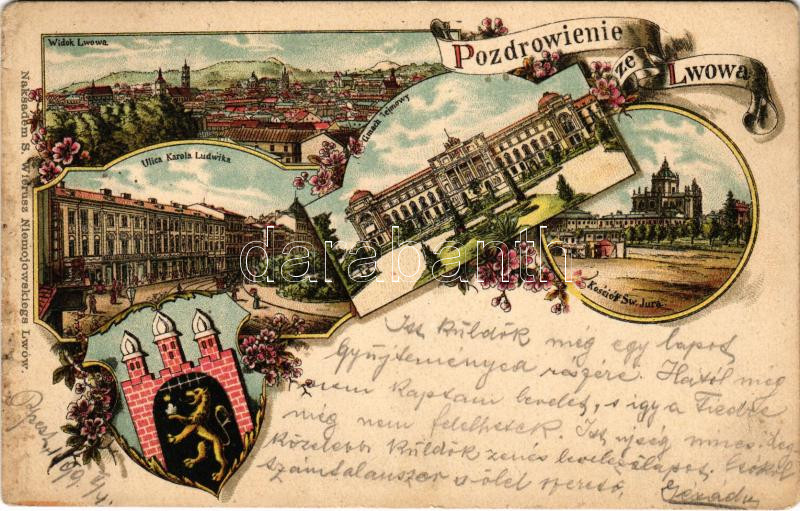 Pozdrowienie
ze Lwowa
Widok Lwowa.
Gmach Sejmowy
Ulica Karola Ludwika
Kościół Św. Jura.
Nakładem S. Wierusz Niemojowskiego Lwów.
darabanth
Itt küldök még egy lapot
Gyűjteményed részére. Hatól még
nem kaptam levelet, s így a Tiedre
még nem felelhetek. Itt ujság nincs.
Közelebb küldök zenés levelezőlapot. Csókol
számtalanszor s ölel szerető